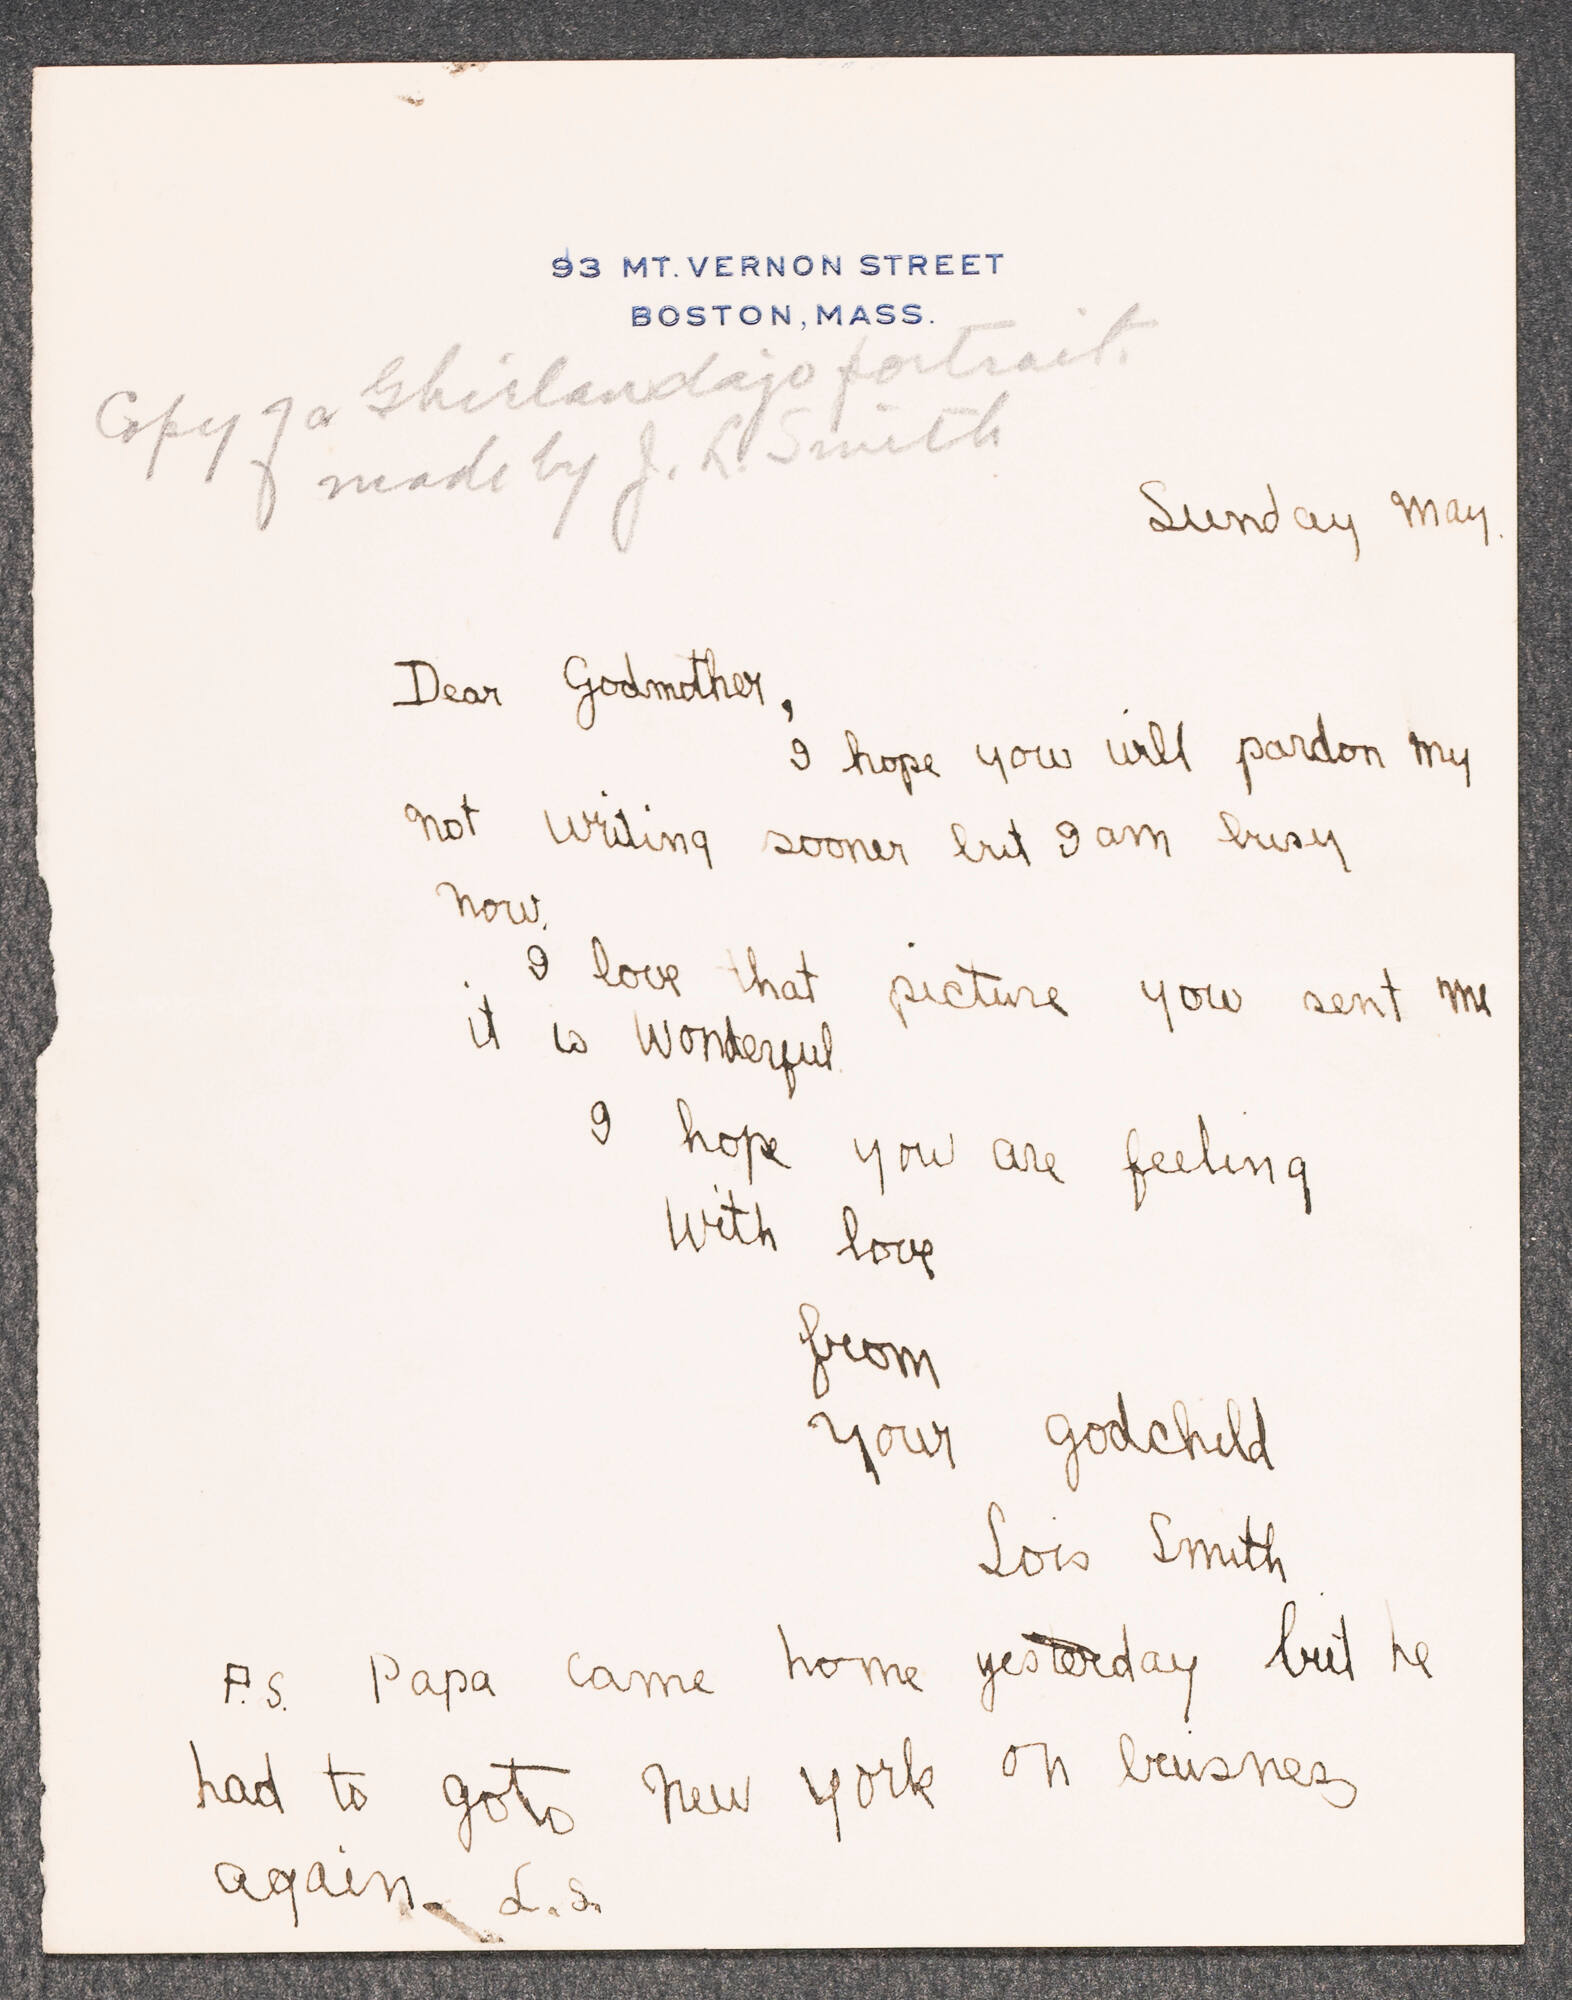 93 MT. VERNON STREET
BOSTON, MASS.
Copy of a Ghirlandajo portrait
made by J. L. Smith
Sunday May.
Dear Godmother,
I hope you will pardon my
not writing sooner but I am busy
now.
I love that picture you sent me
it is Wonderful.
I hope you are feeling
With love
from
Your godchild
Lois Smith
P.S. Papa came home yesterday but he
had to go to New York on buisness
again. L.S.